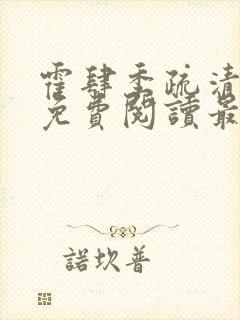 霍肆季疏清
免費閱讀最
諾坎普